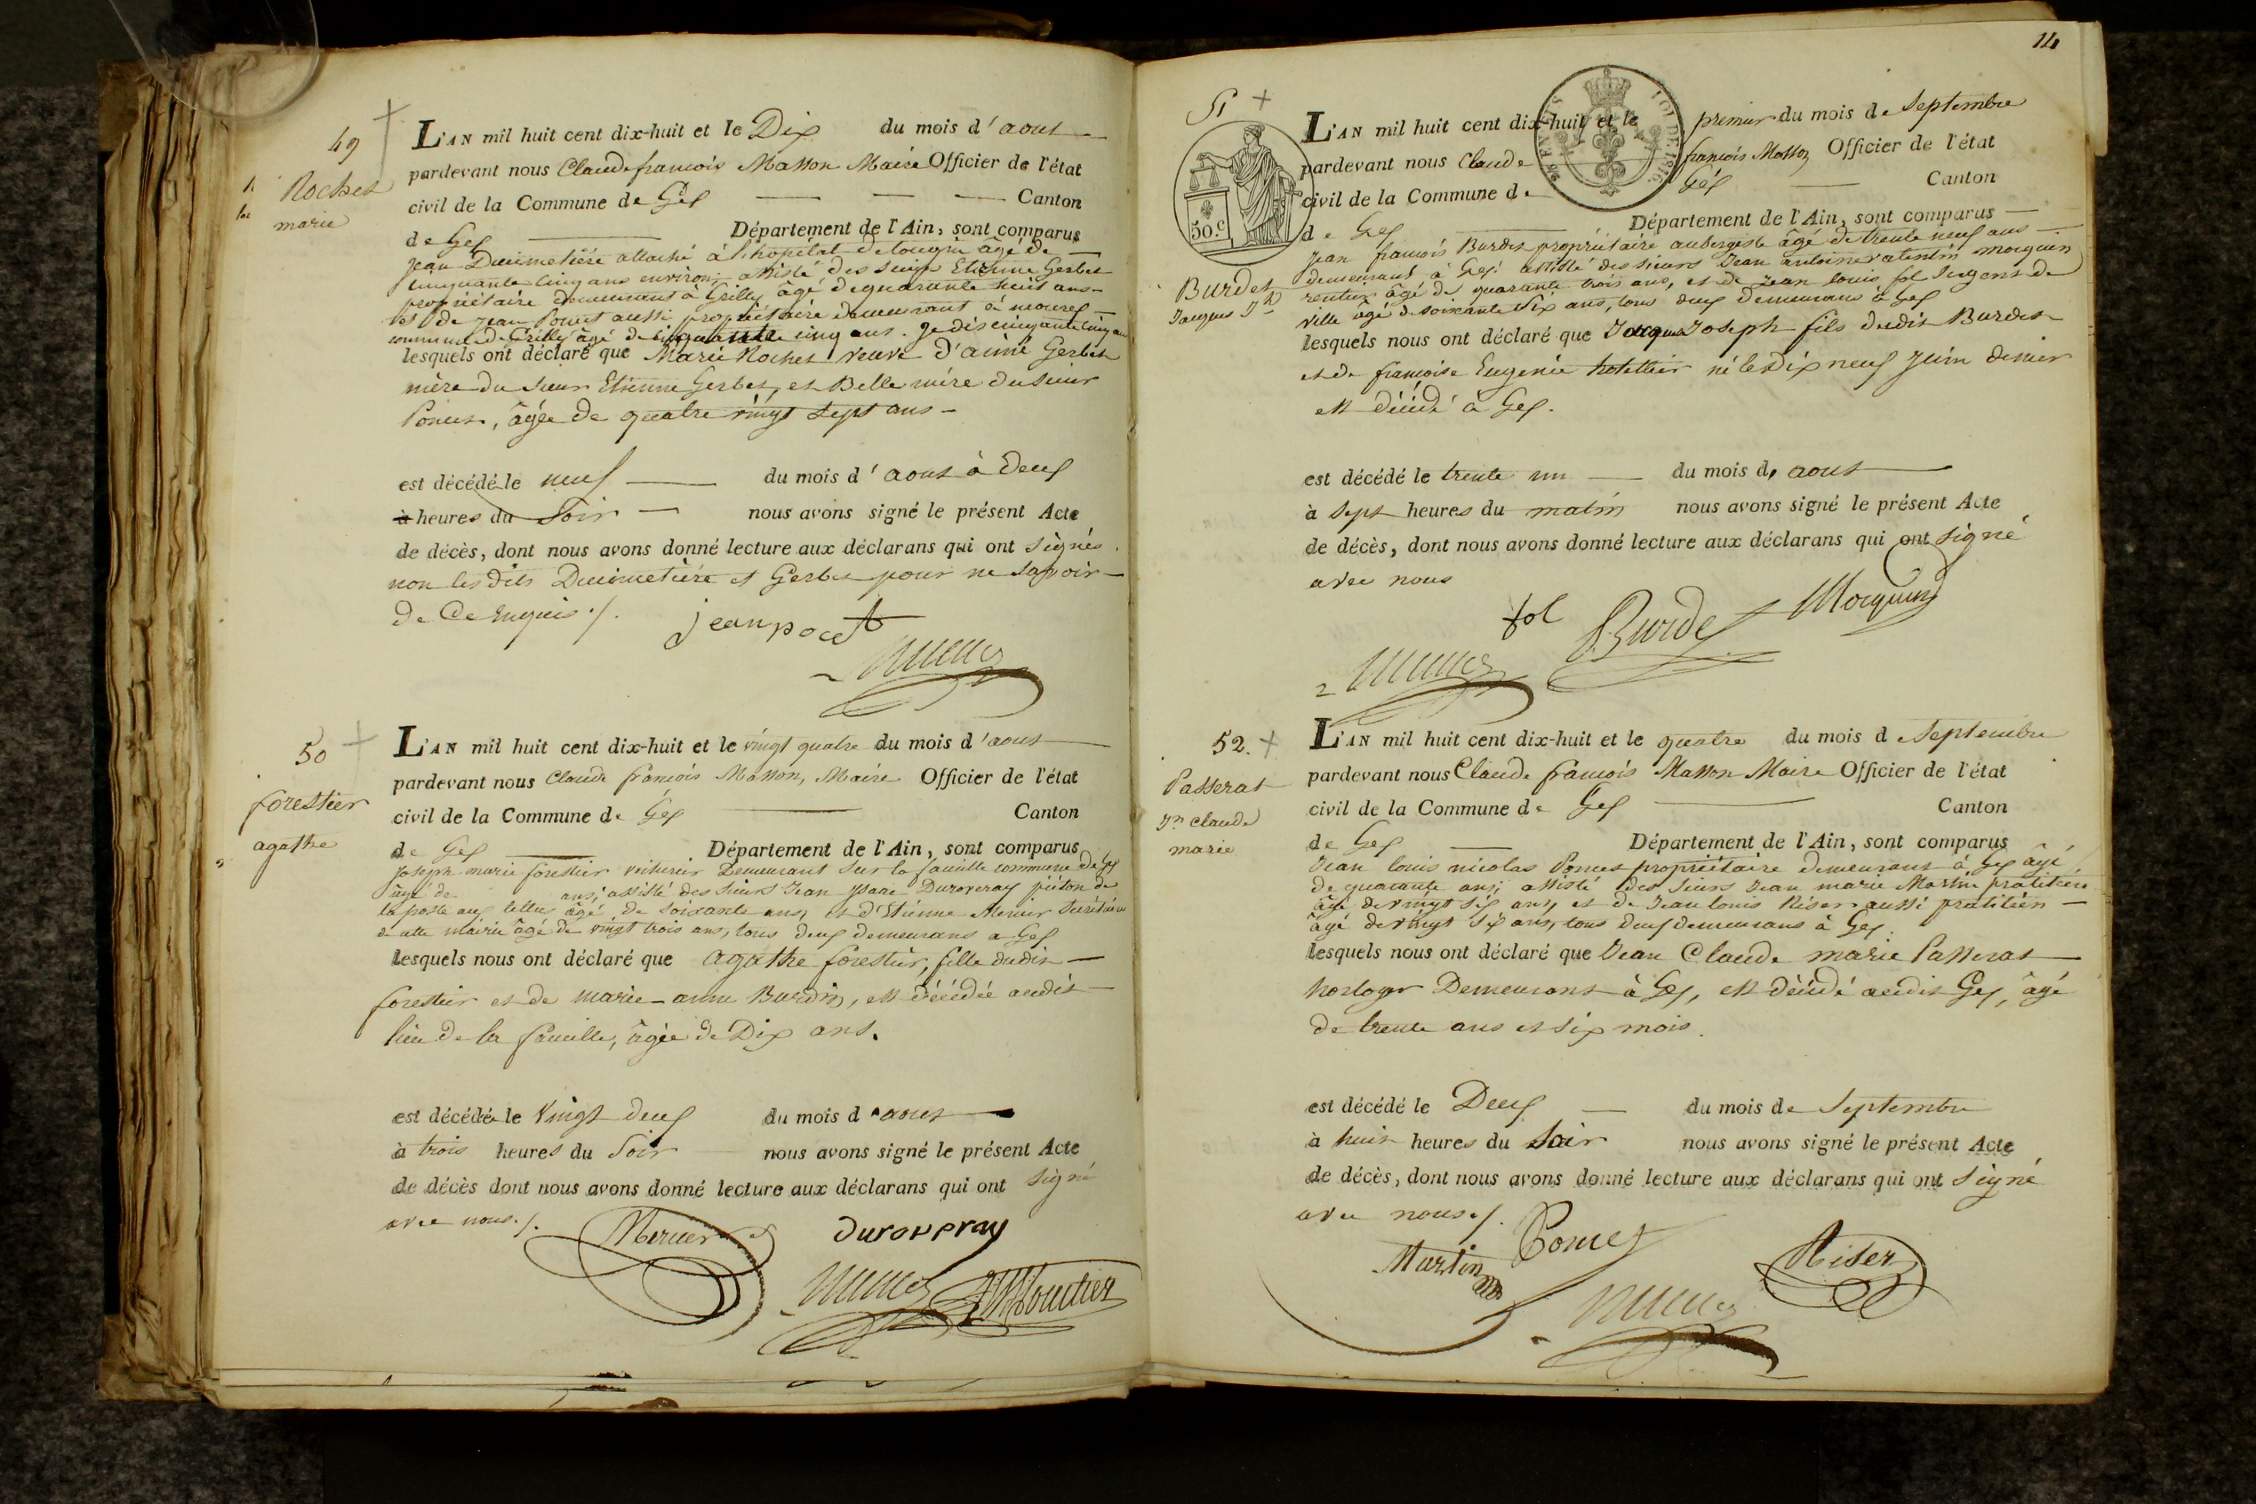 49
Rochet
marie
L'AN mil huit cent dix-huit et le Dix du mois d'aout
pardevant nous Claude francois Masson Maire Officier de l'état
civil de la Commune de Gex Canton
de Gex Département de l'Ain, sont comparus
Jean Ducimetière attaché à l'hopital de tougin âgé de
cinquante cinq ans environ; assisté des sieurs Etienne Gerbet
propriétaire demeurant à Grilly âgé de quarante huit ans
et de Jean Poncet aussi propriétaire demeurant à mourex
commune de Grilly âgé de cinquante cinq ans. je dis cinquante cinq ans
lesquels ont déclaré que Marie Rochet veuve d'aimé Gerbet
mère du sieur Etienne Gerbet, et Belle mère du sieur
Poncet, âgée de quatre vingt sept ans
est décédé le neuf du mois d'aout à Deux
à heures du Soir nous avons signé le présent Acte
de décès, dont nous avons donné lecture aux déclarans qui ont signés
non les dits Ducimetière et Gerbet pour ne savoir
de Ce enquis ./.
jean pocet
50
forestier
agathe
L'AN mil huit cent dix-huit et le vingt quatre du mois d'aout
pardevant nous Claude francois Masson, Maire Officier de l'état
civil de la Commune de Gex Canton
de Gex Département de l'Ain, sont comparus
Joseph marie forestier voiturier Demeurant sur la faucille commune de Gex
âgé de ans, assisté des sieurs Jean Isaac Duroveray piéton de
la poste aux lettres âgé de soixante ans, et d'Etienne Mercier Secrétaire
de cette mairie âgé de vingt trois ans, tous deux demeurans a Gex
lesquels nous ont déclaré que agathe forestier, fille dudit
forestier et de marie-anne Burdin, est décédée audit
lieu de la faucille, âgée de Dix ans.
est décédée le Vingt deux du mois d'aout
à trois heures du Soir nous avons signé le présent Acte
de décès dont nous avons donné lecture aux déclarans qui ont signé
avec nous ./.
Mercier Duroveray
14
51
50.C
LOI DE 1816
Burdet
Jacques Jh
L'AN mil huit cent dix-huit et le premier du mois de Septembre
pardevant nous Claude francois Masson Officier de l'état
civil de la Commune de Gex Canton
de Gex Département de l'Ain, sont comparus
Jean francois Burdet propriétaire aubergiste âgé de trente neuf ans
demeurant à Gex: assisté des sieurs Jean antoine valentin morquin
rentier âgé de quarante trois ans, et de Jean louis fol Sergent de
ville âgé de soixante six ans, tous deux demeurans à Gex
lesquels nous ont déclaré que Jacques Joseph fils dudit Burdet
et de francoise Eugenie hotellier né le Dix neuf Juin dernier
est décédé à Gex.
est décédé le trente un du mois d'aout
à sept heures du matin nous avons signé le présent Acte
de décès, dont nous avons donné lecture aux déclarans qui ont signé
avec nous
fol Burdet Morquin
52.
Passerat
Jn Claude
marie
L'AN mil huit cent dix-huit et le quatre du mois d Septembre
pardevant nous Claude francois Masson Maire Officier de l'état
civil de la Commune de Gex Canton
de Gex Département de l'Ain, sont comparus
Jean louis nicolas Poncet propriétaire demeurant à Gex âgé
de quarante ans; assisté des sieurs Jean marie Martin praticien
âgé de vingt six ans, et de Jean louis Riser aussi praticien
âgé de vingt six ans, tous deux demeurans à Gex.
lesquels nous ont déclaré que Jean Claude marie Passerat
horloger Demeurant à Gex, est décédé audit Gex, âgé
de trente ans et six mois.
est décédé le Deux du mois de Septembre
à huit heures du Soir nous avons signé le présent Acte
de décès, dont nous avons donné lecture aux déclarans qui ont signé
avec nous ./.
Martin Poncet Riser